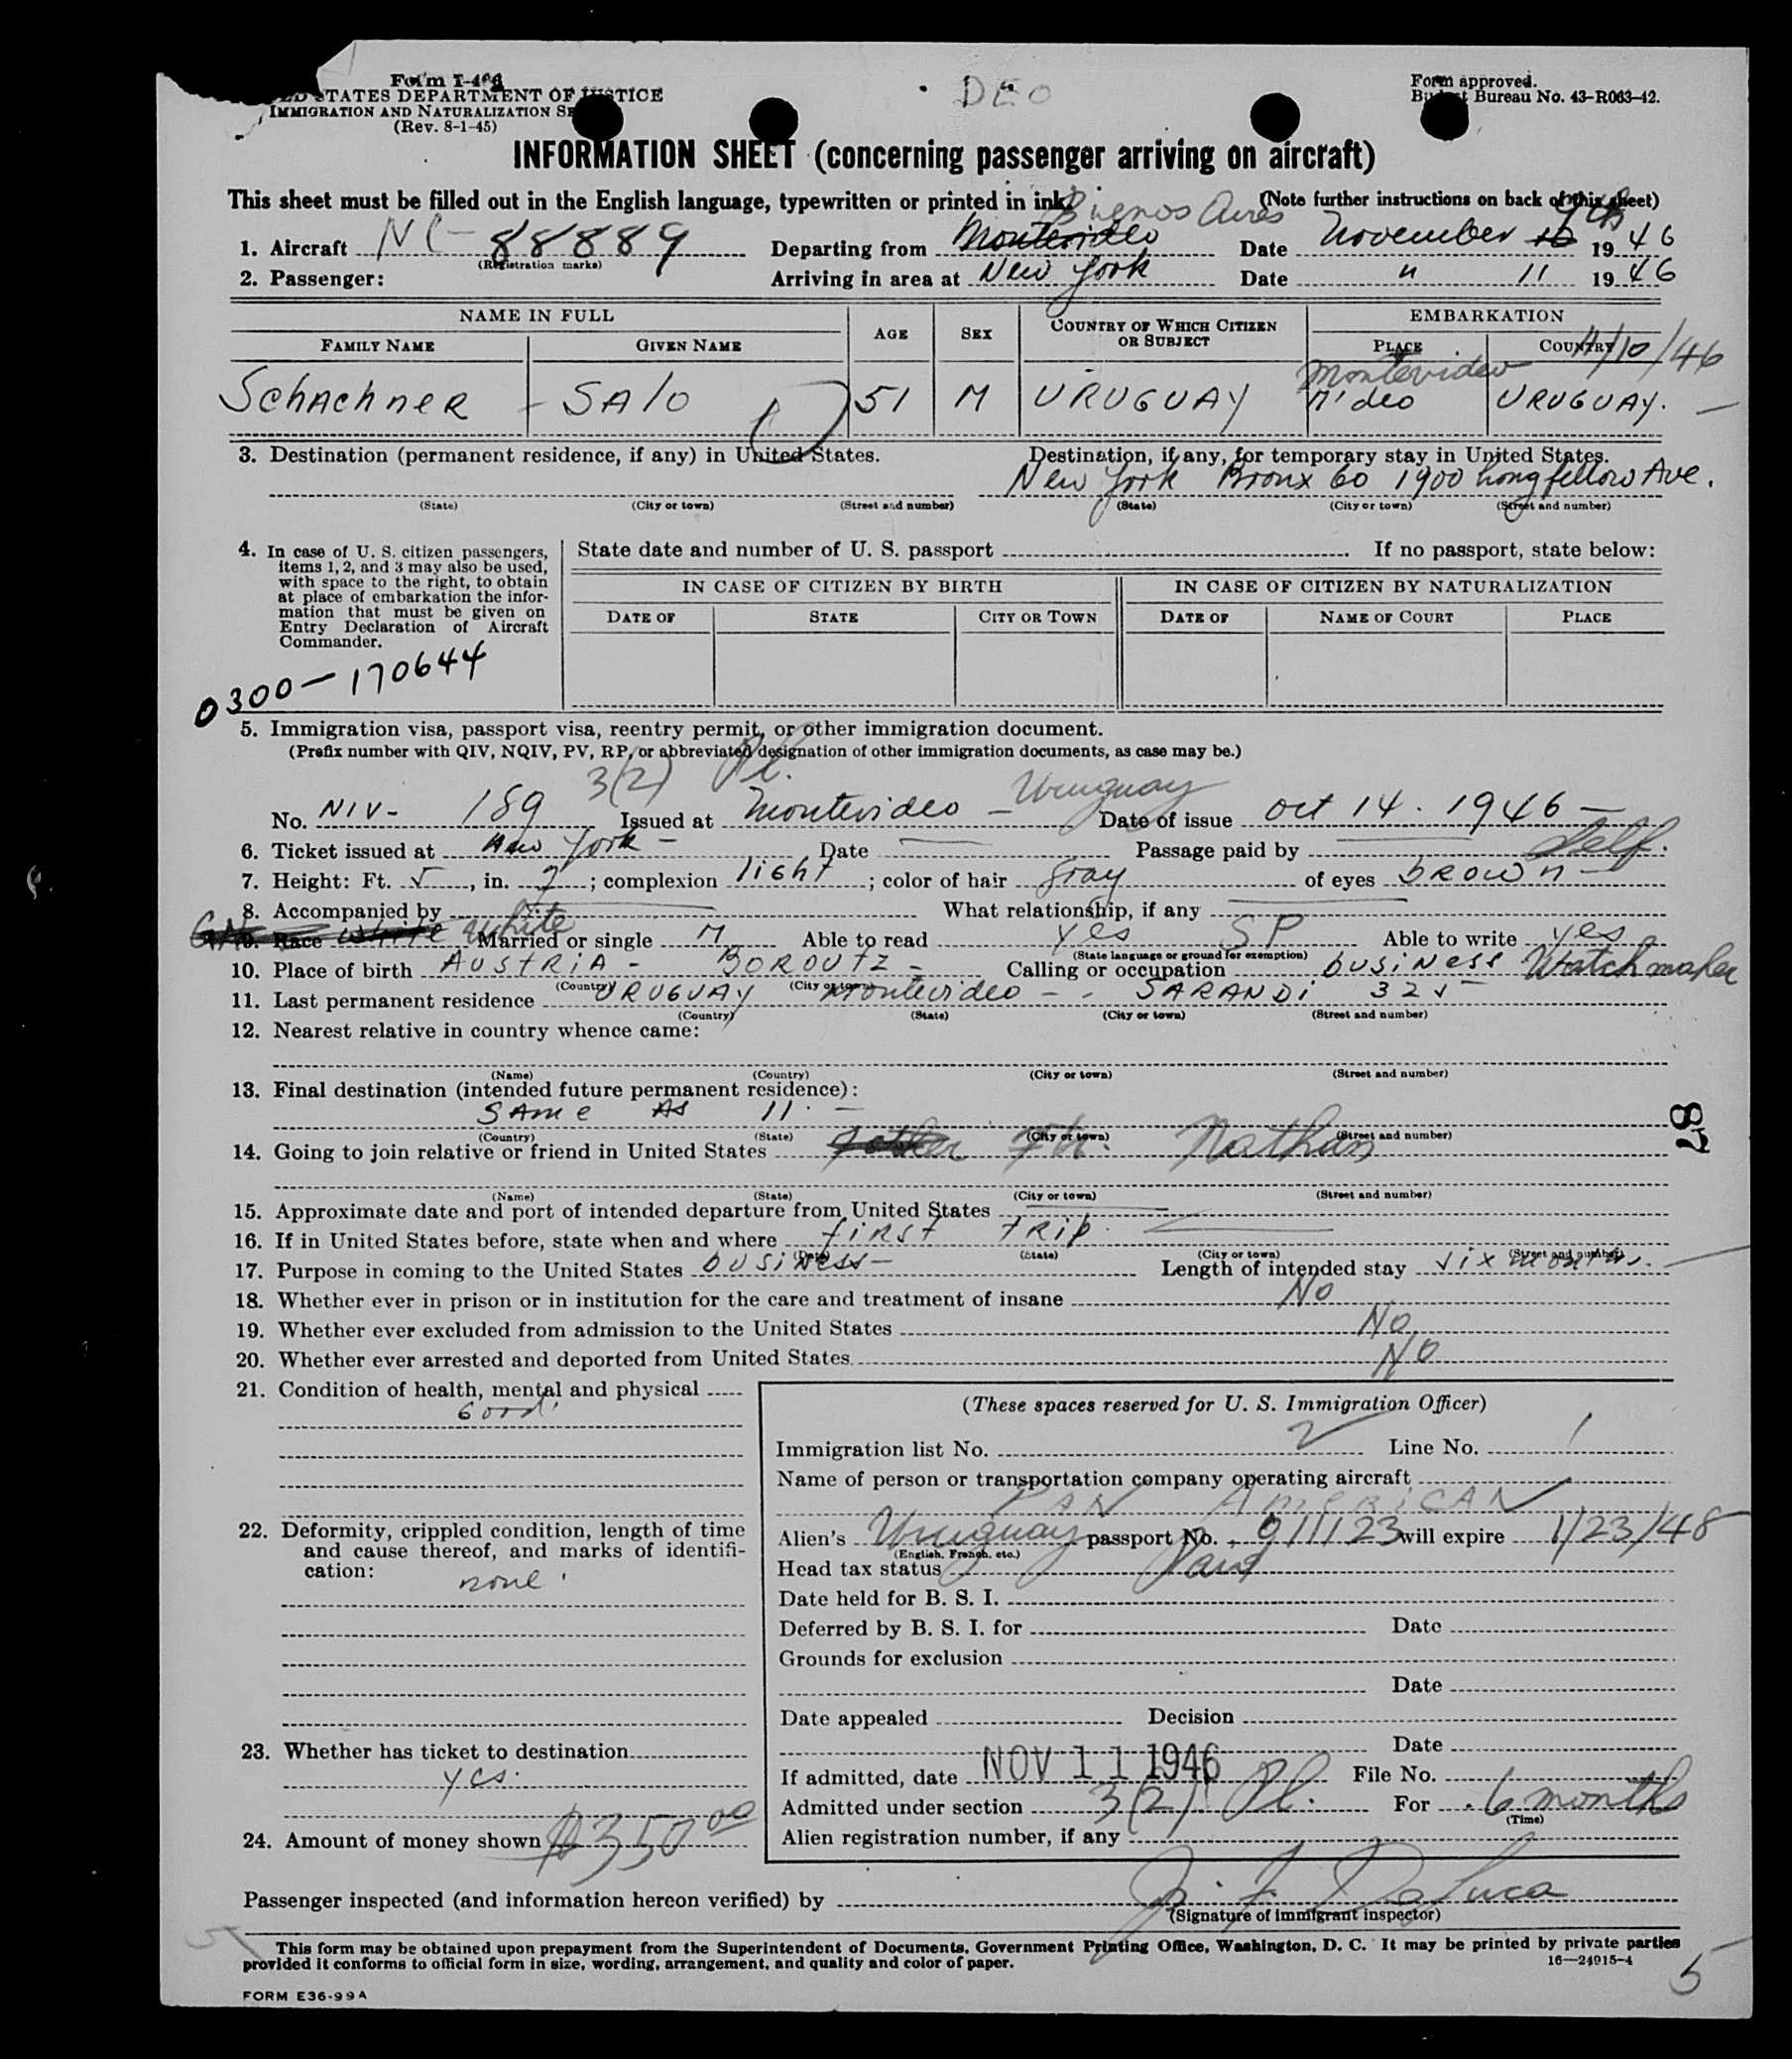 Form I-466
STATES DEPARTMENT OF JUSTICE
IMMIGRATION AND NATURALIZATION
(Rev. 8-1-45)
DEO
Form approved.
Budget Bureau No. 43-R063-42.
INFORMATION SHEET (concerning passenger arriving on aircraft)
This sheet must be filled out in the English language, typewritten or printed in ink. (Note further instructions on back of this sheet)
Buenos Aires
1. Aircraft NC-88889 Departing from Montevideo Date November 19 46
(Registration marks)
2. Passenger: Arriving in area at New York Date " 11 19 46
NAME IN FULL AGE SEX COUNTRY OF WHICH CITIZEN OR SUBJECT EMBARKATION
FAMILY NAME GIVEN NAME PLACE COUNTRY 11/10/46
Montevideo
SchAchneR - SAlo 51 M URUGUAY M'deo URUGUAY. -
3. Destination (permanent residence, if any) in United States. Destination, if any, for temporary stay in United States.
New York Bronx 60 1900 Longfellow Ave.
(State) (City or town) (Street and number) (State) (City or town) (Street and number)
4. In case of U. S. citizen passengers, items 1, 2, and 3 may also be used, with space to the right, to obtain at place of embarkation the information that must be given on Entry Declaration of Aircraft Commander.
State date and number of U. S. passport If no passport, state below:
IN CASE OF CITIZEN BY BIRTH IN CASE OF CITIZEN BY NATURALIZATION
DATE OF STATE CITY OR TOWN DATE OF NAME OF COURT PLACE
0300-170644
5. Immigration visa, passport visa, reentry permit, or other immigration document.
(Prefix number with QIV, NQIV, PV, RP, or abbreviated designation of other immigration documents, as case may be.)
3(2) Pl.
No. NIV- 189 Issued at Montevideo - Uruguay Date of issue Oct 14. 1946 -
6. Ticket issued at New York - Date Passage paid by Self.
7. Height: Ft. 5, in. 7; complexion light; color of hair gray of eyes BROWN
8. Accompanied by What relationship, if any
9. Race white White Married or single M Able to read yes SP Able to write yes
(State language or ground for exemption)
10. Place of birth AUSTRIA - BOROUTZ - Calling or occupation business Watchmaker
(Country) (City or town)
11. Last permanent residence URUGUAY Montevideo - - SARANDI 325
(Country) (State) (City or town) (Street and number)
12. Nearest relative in country whence came:
(Name) (Country) (City or town) (Street and number)
13. Final destination (intended future permanent residence):
SAme As 11. -
(Country) (State) (City or town) (Street and number)
87
14. Going to join relative or friend in United States Nathan
(Name) (State) (City or town) (Street and number)
15. Approximate date and port of intended departure from United States
16. If in United States before, state when and where first trip.
(Date) (State) (City or town) (Street and number)
17. Purpose in coming to the United States business - Length of intended stay six months.
18. Whether ever in prison or in institution for the care and treatment of insane No
19. Whether ever excluded from admission to the United States No
20. Whether ever arrested and deported from United States. No
21. Condition of health, mental and physical
Good.
(These spaces reserved for U. S. Immigration Officer)
Immigration list No. 2 Line No. 1
Name of person or transportation company operating aircraft
PAN AMERICAN
22. Deformity, crippled condition, length of time and cause thereof, and marks of identification:
none.
Alien's Uruguay passport No. 011123 will expire 1/23/48
(English, French, etc.)
Head tax status Paid
Date held for B. S. I.
Deferred by B. S. I. for Date
Grounds for exclusion
Date
Date appealed Decision
Date
23. Whether has ticket to destination
yes.
If admitted, date NOV 11 1946 File No.
Admitted under section 3(2) Pl. For 6 months
(Time)
24. Amount of money shown $350.00
Alien registration number, if any
Passenger inspected (and information hereon verified) by J. F. DeLuca
(Signature of immigrant inspector)
This form may be obtained upon prepayment from the Superintendent of Documents, Government Printing Office, Washington, D. C. It may be printed by private parties
provided it conforms to official form in size, wording, arrangement, and quality and color of paper.
16—24915-4
5
FORM E36-99A